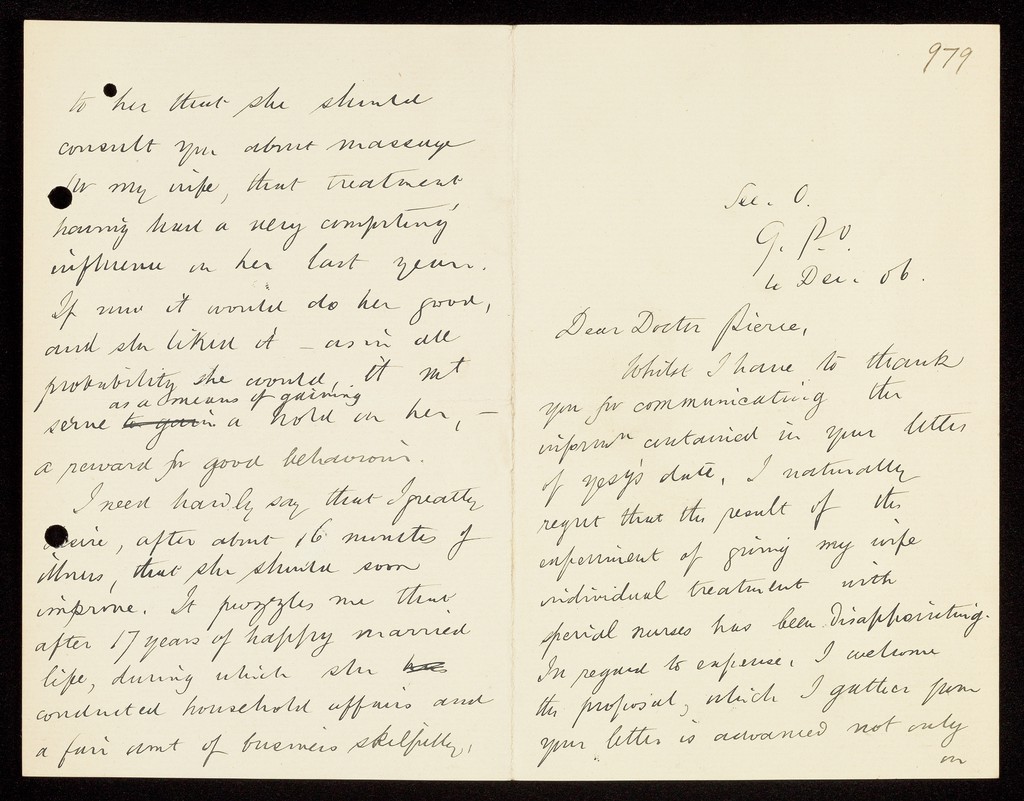 979
Sec. O.
G. P. O.
4 Dec. 06.
Dear Doctor Pierce,
Whilst I have to thank
you for communicating the
informn contained in your letter
of yesty's date, I naturally
regret that the result of the
experiment of giving my wife
individual treatment with
special nurses has been disappointing.
In regard to expense, I welcome
the proposal, which I gather from
your letter is advanced not only
on
to her that she should
consult you about massage
for my wife, that treatment
having had a very comforting
influence on her last year.
If now it would do her good,
and she liked it – as in all
probability she would, it mt
serve to gain as a means of gaining a hold on her, –
a reward for good behaviour.
I need hardly say that I greatly
desire, after about 16 months of
illness, that she should soon
improve. It puzzles me that
after 17 years of happy married
life, during which she has
conducted household affairs and
a fair amt of business skilfully,